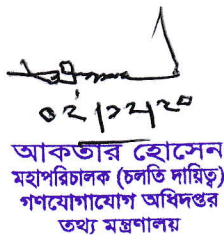 আকতার হোসেন
মহাপরিচালক (চলতি দায়িত্ব)
গণযোগাযোগ অধিদপ্তর
তথ্য মন্ত্রণালয়